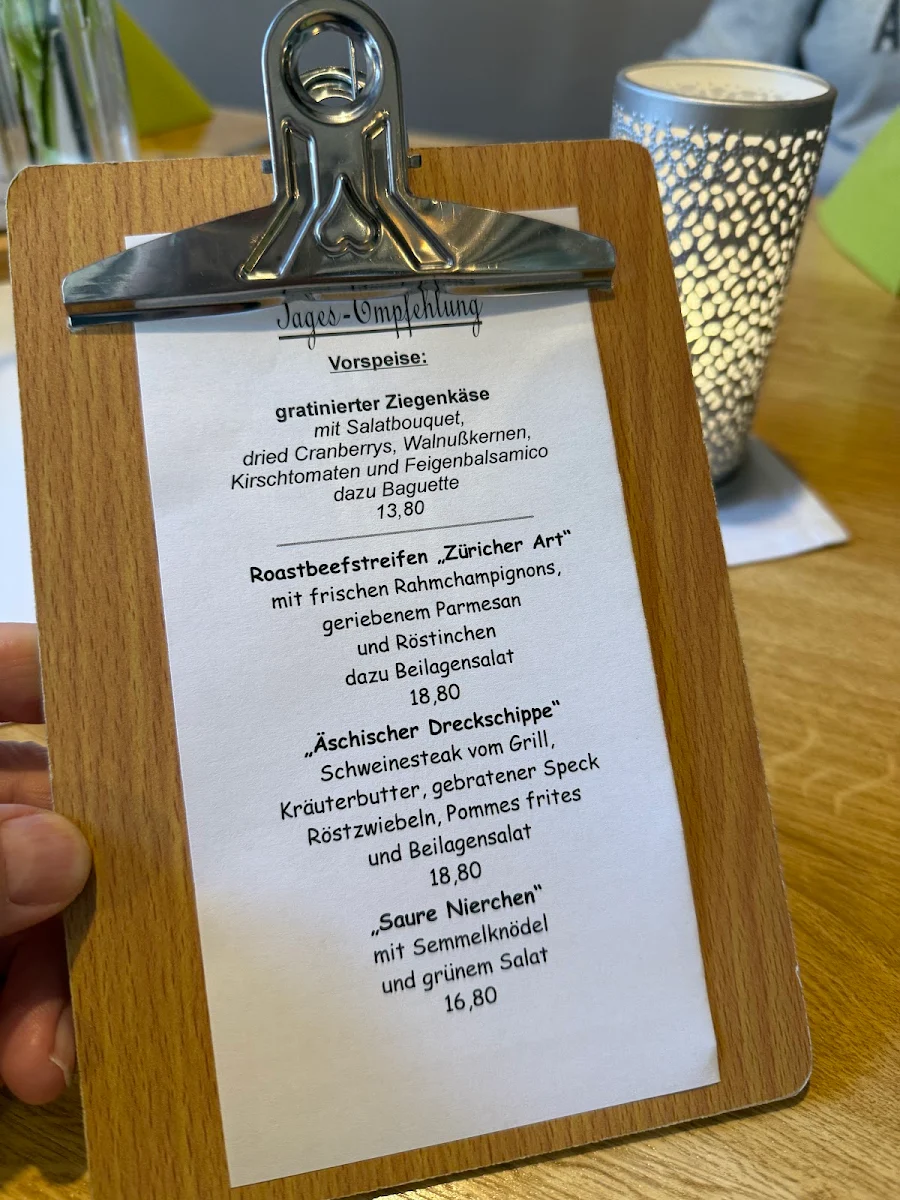 Tages-Empfehlung
Vorspeise:
gratinierter Ziegenkäse
mit Salatbouquet,
dried Cranberrys, Walnußkernen,
Kirschtomaten und Feigenbalsamico
dazu Baguette
13,80
Roastbeefstreifen „Züricher Art“
mit frischen Rahmchampignons,
geriebenem Parmesan
und Röstinchen
dazu Beilagensalat
18,80
„Äschischer Dreckschippe“
Schweinesteak vom Grill,
Kräuterbutter, gebratener Speck
Röstzwiebeln, Pommes frites
und Beilagensalat
18,80
„Saure Nierchen“
mit Semmelknödel
und grünem Salat
16,80